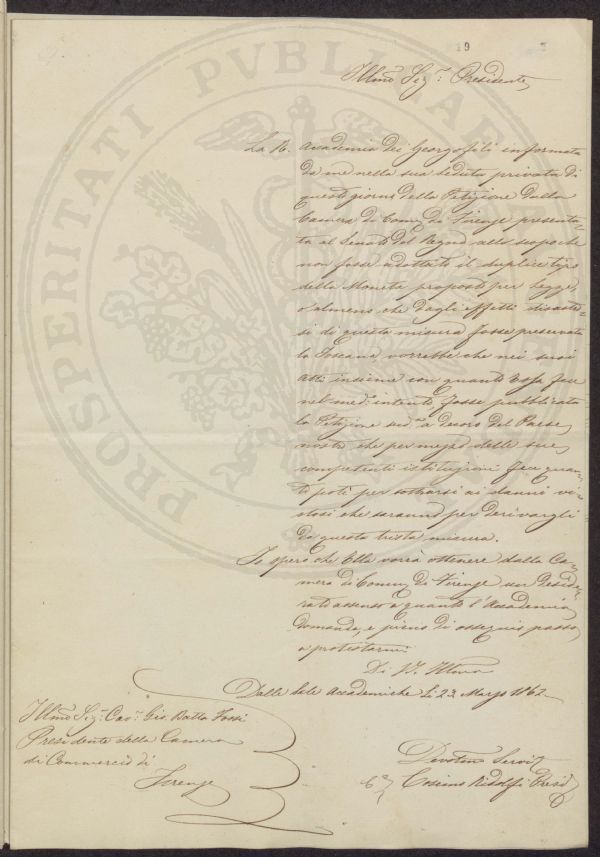 19
PROSPERITATI PVBLICAE
Illmo Sig.r Presidente
La R. Accademia dei Georgofili informata
da me nella sua seduta privata di
questo giorno della Petizione dalla
Camera di Comm. di Firenze presenta-
ta al Senato del Regno allo scopo che
non fosse adottato il duplice tipo
della Moneta proposto per Legge,
o almeno che dagli effetti disastro-
si di questa misura fosse preservata
la Toscana vorrebbe che nei suoi
Atti insieme con quanto Essa fece
nel med.o intento, fosse pubblicata
la Petizione sud.a a decoro del Paese
nostro che per mezzo delle sue
competenti istituzioni fece quan-
to potè per sottrarsi ai danni vi-
stosi che saranno per derivargli
da questa trista misura.
Io spero che Ella vorrà ottenere dalla Ca-
mera di Comm. di Firenze un deside-
rato assenso a quanto l'Accademia
domanda, e pieno di ossequio passo
a protestarmi
Di V. S. Illma
Dalle Sale Accademiche li 23 Marzo 1862
Illmo Sig.r Cav.r Gio. Batta Fossi
Presidente della Camera
di Commercio di
Firenze
Devotmo Servit.
Cosimo Ridolfi Presid.